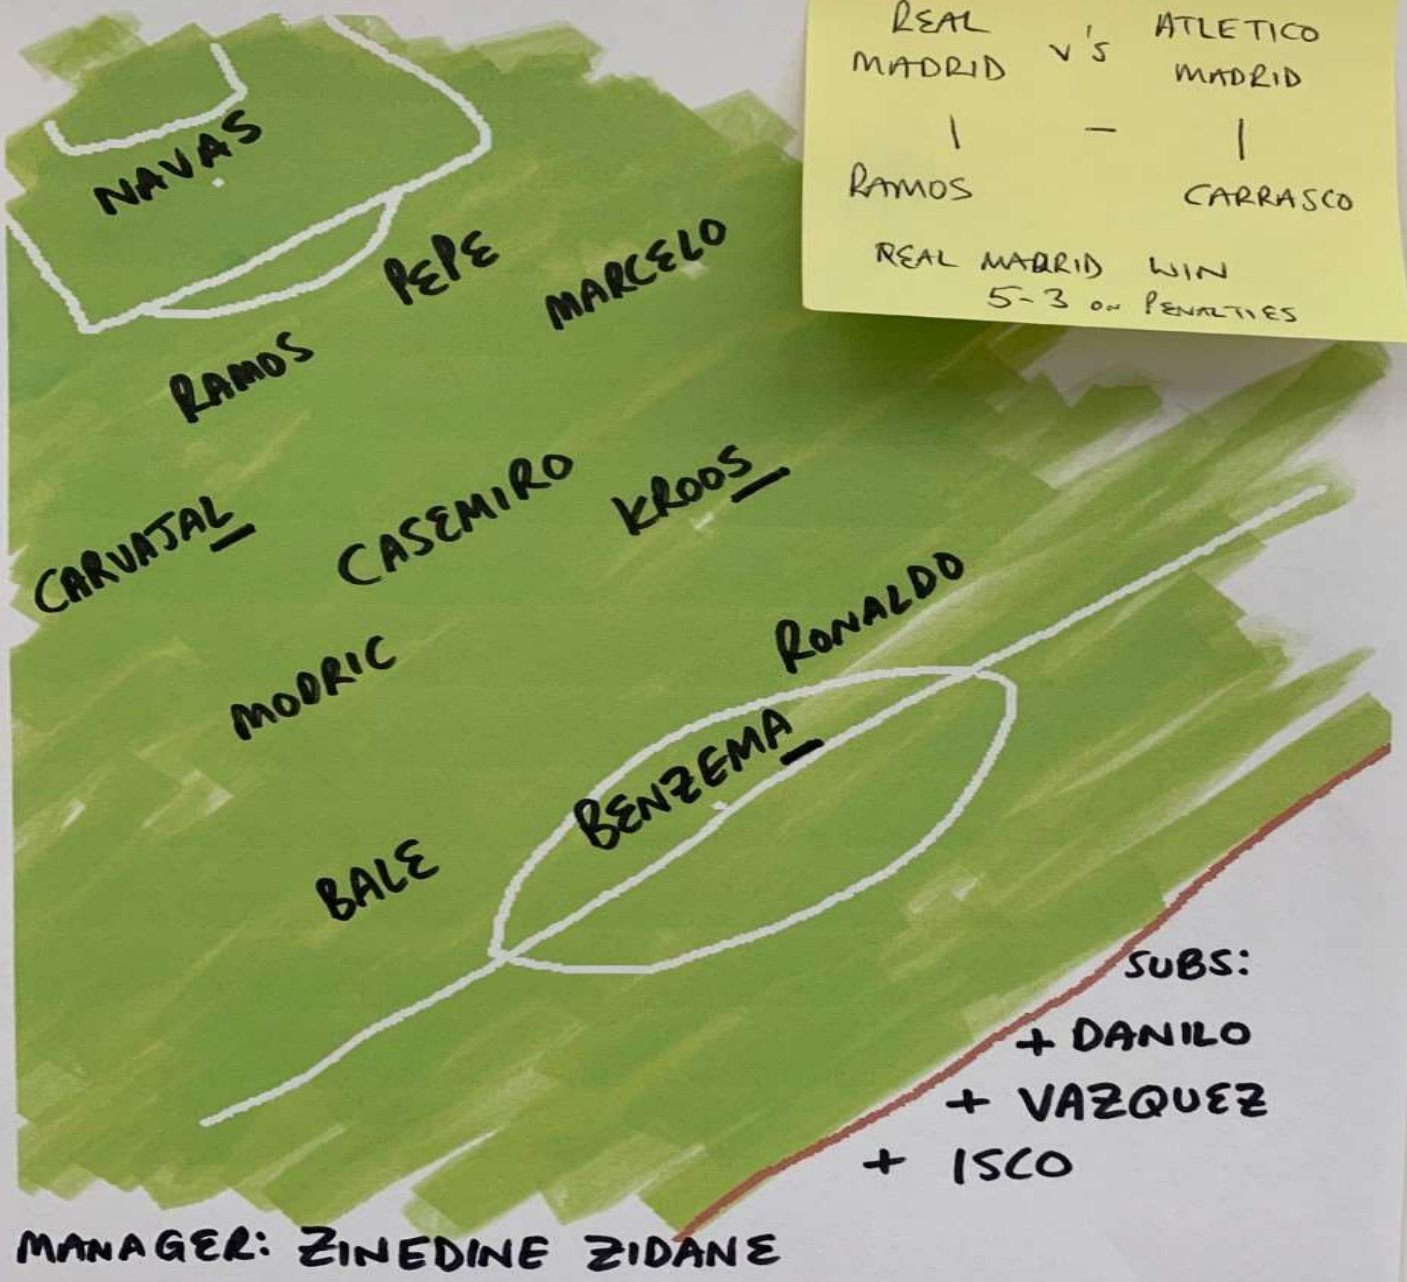 REAL MADRID V'S ATLETICO MADRID
1 - 1
RAMOS CARRASCO
REAL MADRID WIN
5-3 ON PENALTIES
NAVAS
PEPE
MARCELO
RAMOS
CARVAJAL
CASEMIRO
KROOS
MODRIC
RONALDO
BENZEMA
BALE
SUBS:
+ DANILO
+ VAZQUEZ
+ ISCO
MANAGER: ZINEDINE ZIDANE